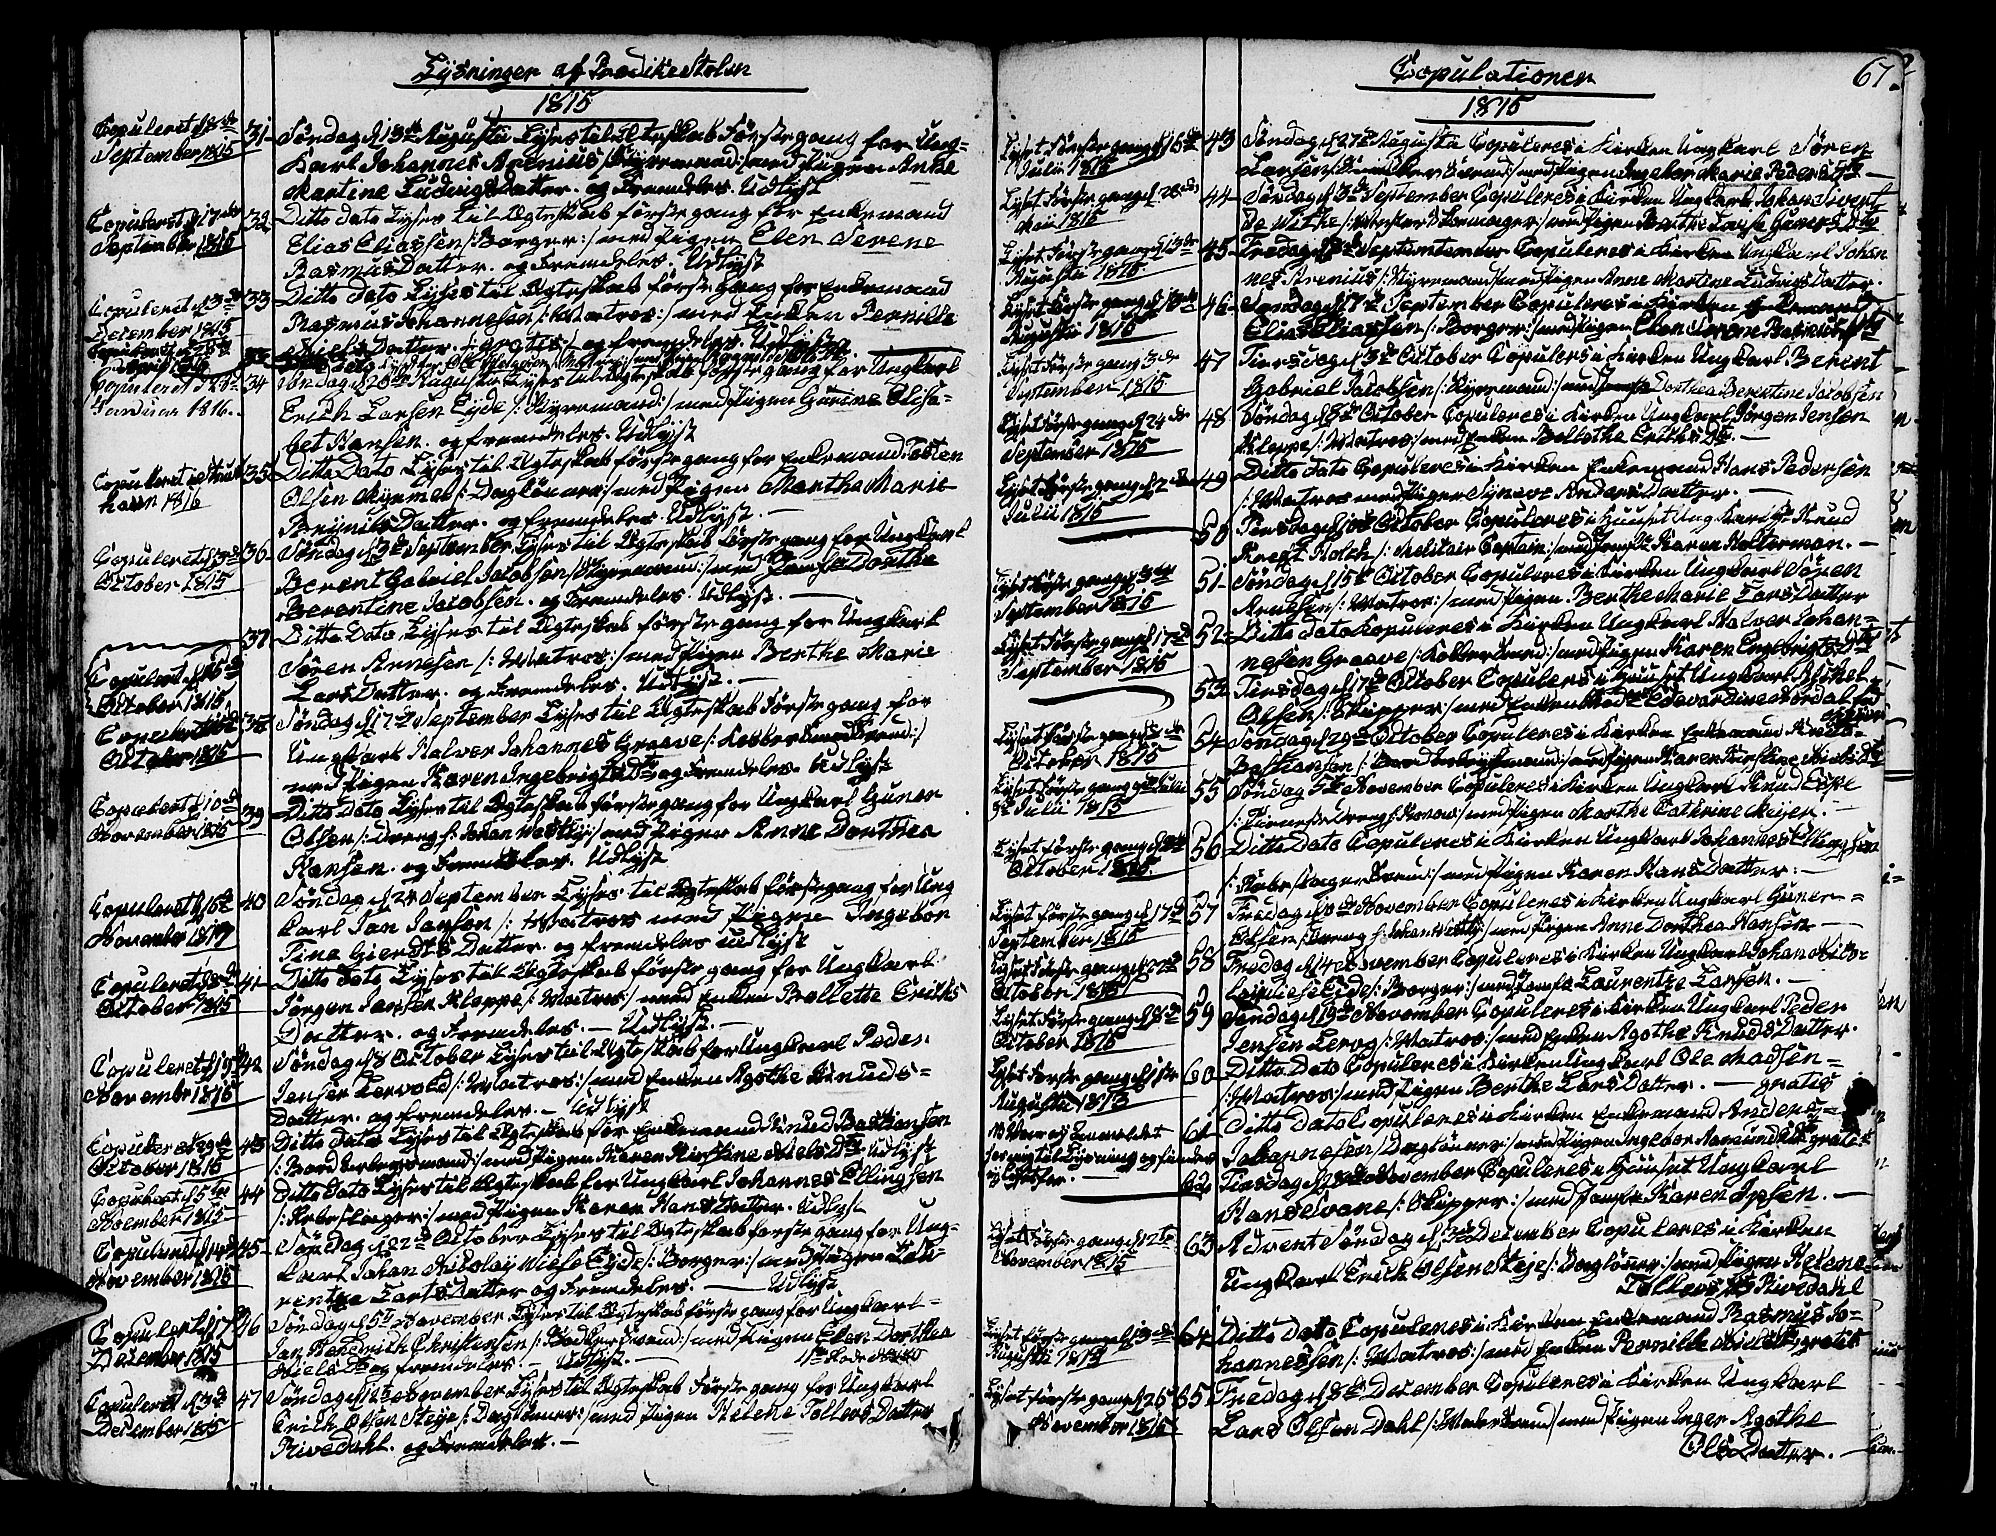 Lysninger af Prædike Stolen
1815
Copuleret d 18de
September 1815
31- Søndag d 13de Augustii Lyses til Ægteskab Første gang for Ung-
Karl Johannes Arenius /:Styremand:/ med Pigen Anne
Martine Ludvigs Datter. og Fremdeles. Udlyst
Copuleret d 17de
September 1815
32 Ditto Dato Lyses til Ægteskab første gang for Enkemand
Elias Eliassen /:Borger:/ med Pigen Elen Serene
Rasmus Datter. og Fremdeles. Udlyst
Copuleret d 3de
December 1815
33 Ditto Dato Lyses til Ægteskab første gang for Enkemand
Rasmus Johannesen /:Matros:/ med Enken Pernille
Niels Datter. /:gratis:/ og fremdeles. Udlyst
Copuleret
Januar 1816.
34 Søndag d 20de Augustii Lyses til Ægteskab første gang for Ungkarl
Erich Larsen Eyde /:Styremand:/ med Pigen Gurine Elisa-
bet Hansen. og fremdeles. Udlyst
Copuleret
1816
35 Ditto Dato Lyses til Ægteskab første gang for Enkemand Tosten
Olsen /:Daglønner:/ med Pigen Marthe Marie
Brynils Datter. og fremdeles. Udlyst. —
Copuleret d 3de
October 1815
36- Søndag d 3de September Lyses til Ægteskab første gang for Ungkarl
Berent Gabriel Jacobsen /:Styremand:/ med Jomfr Dorthe
Berentine Jacobsen. og Fremdeles. Udlyst. —
Copuleret d 15de
October 1815.
37 Ditto Dato Lyses til Ægteskab første gang for Ungkarl
Søren Arnesen /:Matros:/ med Pigen Berthe Marie
Lars Datter. og Fremdeles. Udlyst. —
Copuleret
October 1815
38 Søndag d 17de September Lyses til Ægteskab Første gang for
Ungkarl Halver Johannes Graave /:Kobbersmed Svend:/
med Pigen Karen Ingebrigts Dtr og Fremdeles. Udlyst
Copuleret d 10de
November 1815
39 Ditto Dato Lyses til Ægteskab første gang for Ungkarl Guner
Olsen /:Dreng f: Johan Westly:/ med Pigen Anne Dorthea
Hansen. og Fremdeles. Udlyst
Copuleret d 16de
November 1815
40 Søndag d 24 September Lyses til Ægteskab første gang for Ung
karl Jan Jansen /:Matros med Pigen Ingebor
Tine Gierdts Datter. og fremdeles udlyst
Copuleret d 8de
October 1815
41- Ditto Dato Lyses til Ægteskab første gang for Ungkarl.
Jørgen Jansen Kloppe /:Matros:/ med Enken Bollette Erichs
Datter. og Fremdeles. — Udlyst. —
Copuleret d 19de
November 1815
42 Søndag d 8 October Lyses til Ægteskab for Ungkarl Peder
Jensen Lervold /:Matros:/ med Enken Agothe Knuds-
Datter. og fremdeles. — Udlyst
Copuleret d 29de
October 1815
43 Ditto Dato Lyses til Ægteskab for Enkemand Knud Bastiansen
med Pigen Karen Kirstine Niels Dtr Udlyst
Copuleret d 5te
November 1815
44 Ditto Dato Lyses til Ægteskab for Ungkarl Johannes Ellingsen
/:Rebeslager:/ med Pigen Karen Hans Datter. Udlyst
Copuleret
November 1815
45- Søndag d 22de October Lyses til Ægteskab første gang for Ung-
karl Johan Nikolay Wiese Eyde /:Borger:/ med Pigen Lau-
rentze Larts Datter og Fremdeles. — Udlyst
Copuleret d 17de
December 1815
46 Søndag d 5te November Lyses til Ægteskab første gang for Ungkarl-
Jan Hendrich Christensen med Pigen Elen Dorthea
Niels Dtr og fremdeles. — Udlyst. —
Copuleret d 3de
December 1815
47 Søndag d 12te November Lyses til Ægteskab Første gang for Ungkarl
Erich Olsen Steje /:Dagløner:/ med Pigen Helene Tollevs Datter
Rivedahl. og Fremdeles. —
Copulationer
1815
67
Lyset første gang d 16de
Julii 1815
43 Søndag d 27de Augustii Copuleres i Kirken Ungkarl Søren
Larsen med Pigen Ingebor Marie Peders Dtr —
Lyset Første gang d 28de
Maii 1815
44- Søndag d 3de September Copuleres i Kirken Ungkarl Johan Sivert
De Withe med Pigen Berthe Guners Dtr
Lyset Første gang d 13de
Augustii 1815
45 Fredag d September Copuleres i Kirken Ungkarl Johan
nes Arenius /:Styremand:/ med Pigen Anne Martine Ludvigs Datter.
Lyset Første gang d 13de
Augustii 1815
46- Søndag d 17de September Copuleres i Kirken
Elias Eliassen /:Borger:/ med Pigen Elen Serene Rasmus Dtr
Lyset Første gang 3de
September 1815
47 Tiersdag d 3de October Copuleres i Kirken Ungkarl Berent
Gabriel Jacobsen /:Styremand:/ med Jomfr Dorthea Berentine Jacobsen
Lyset første gang d 24de
September 1815
48 Søndag d 8de October Copuleres i Kirken Ungkarl Jørgen Jensen
Kloppe /:Matros:/ med Enken Bollethe Erichs Dtr. —
Lyset første gang d 2de
Julii 1815
49 Ditto Dato Copuleres i Kirken Enkemand Hans Pedersen
/:Matros med Pigen Synave Anders Datter. —
50 Tiersdag d 10de October Copuleres i Huuset Ung Karl Hr Knud
Kregt Holch /:Melitair Captain:/ med Jomfr Karen Holterman. —
Lyset første gang d 3de
September 1815
51- Søndag d 15de October Copuleres i Kirken Ungkarl Søren
Arnesen /:Matros:/ med Pigen Berthe Marie Lars Datter
Lyset Første gang d 17de
September 1815
52- Ditto Dato Copuleres i Kirken Ungkarl Halver Johan-
nesen Graave /:Kobbersmed:/ med Pigen Karen Engebrigts Dtr
53 Tiersdag d 17de October Copuleres i Huuset Ungkarl
Olsen /:Skipper:/ med Enken
Lyset første gang d 8de
October 1815
54 Søndag d 29de October Copuleres i Kirken Enkemand Knud-
Bastiansen med Pigen Karen Kirstine Niels Dtr
Lyset første gang
Julii 1815
55 Søndag 5te November Copuleres i Kirken Ungkarl Knud Espe
med Pigen Marthe Cathrine Meyer. —
Lyset første gang d 8de
October 1815.
56 Ditto Dato Copuleres i Kirken Ungkarl Johannes Ellingsen
/:Rebeslager Svend:/ med Pigen Karen Hans Datter. —
Lyset første gang d 17de
September 1815
57 Fredag d 10de November Copuleres i Kirken Ungkarl Guner-
Olsen /:Dreng f: Johan Westly:/ med Pigen Anne Dorthea Hansen —
Lyset Første gang d 22de
October 1815
58 Fredag d November Copuleres i Kirken Ungkarl Johan Nico-
lay Wiese Eide /:Borger:/ med Jomfr Laurentze Larsen. —
Lyset første gang d 8de
October 1815
59 Søndag d 19de November Copuleres i Kirken Ungkarl Peder
Jensen /:Matros:/ med Enken Agothe Knuds Datter.
Lyset første gang d 1ste
Augustii 1813
60- Ditto Dato Copuleres i Kirken Ung Karl Ole Madsen-
/:Matros:/ med Pigen Berthe Lars Datter. — gratis
61 Ditto Dato Copuleres i Kirken Enkemand Anders-
Johannesen /:Dagløner:/ med Pigen Ingebor Aamunds Dtr gratis
62 Tiersdag d November Copuleres i Huuset Ungkarl
Hans /:Skipper:/ med Jomfr Karen Ipsen. —
Lyset første gang d 12te
November 1815
63 Advent Søndag d 3de December Copuleres i Kirken
Ungkarl Erich Olsen Steje /:Dagløner:/ med Pigen Helene-
Tollevs Dtr Rivedahl
Lyset første gang d 13de
Augustii 1815
64 Ditto Dato Copuleres i Kirken Enkemand Rasmus Jo-
hannessen /:Matros:/ med Enken Pernille Niels Dtr gratis
Lyset første gang d 26
November 1815
65 Fredag d 8de December Copuleres i Kirken Ungkarl
Lars Olsen Dahl med Pigen Inger Agothe
Ols Datter. —